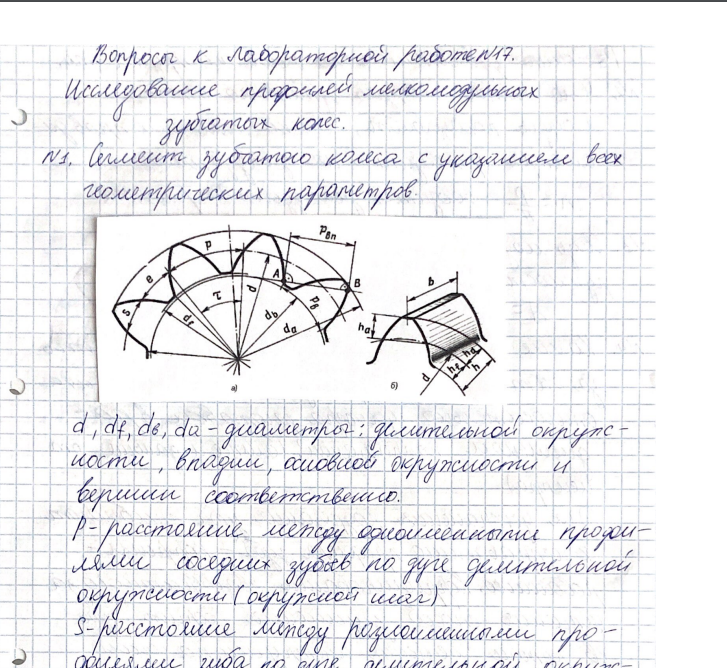 Вопросы к лабораторной работе №17.
Исследование профилей мелкомодульных
зубчатых колес.
№1. Сегмент зубчатого колеса с указанием всех
геометрических параметров.
Pвп
p
e
A
B
s
τ
d
Pв
df
db
da
b
ha
d
hf
ha
h
а)
б)
d, df, dв, da - диаметры: делительной окруж-
ности, впадин, основной окружности и
вершин соответственно.
P- расстояние между одноименными профи-
лями соседних зубьев по дуге делительной
окружности (окружной шаг)
S- расстояние между разноименными про-
филями зуба по дуге делительной окруж-